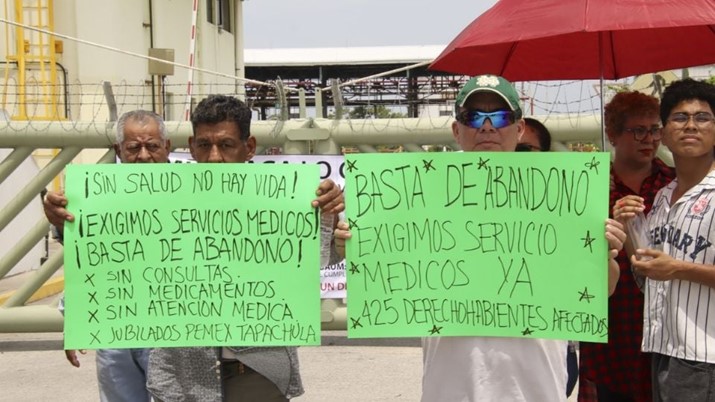 ¡SIN SALUD NO HAY VIDA!
¡EXIGIMOS SERVICIOS MEDICOS!
¡BASTA DE ABANDONO!
x SIN CONSULTAS.
x SIN MEDICAMENTOS.
x SIN ATENCIÓN MEDICA.
x JUBILADOS PEMEX TAPACHULA
BASTA DE ABANDONO
EXIGIMOS SERVICIO
MEDICOS YA
425 DERECHOHABIENTES AFECTADOS